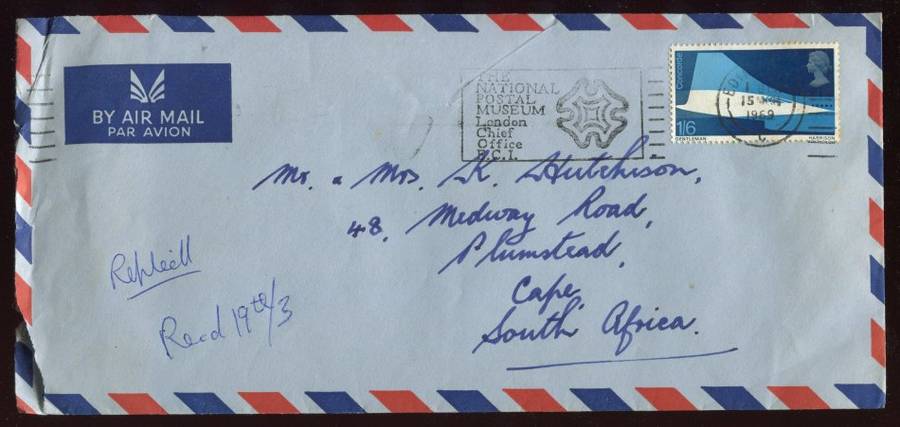 BY AIR MAIL
PAR AVION
THE
NATIONAL
POSTAL
MUSEUM
London
Chief
Office
E.C.I.
Concorde
1/6
GENTLEMAN HARRISON
15
1969
C
Mr. & Mrs. K. Hutchison,
48, Medway Road,
Plumstead,
Cape,
South Africa.
Replied
Recd 19th/3